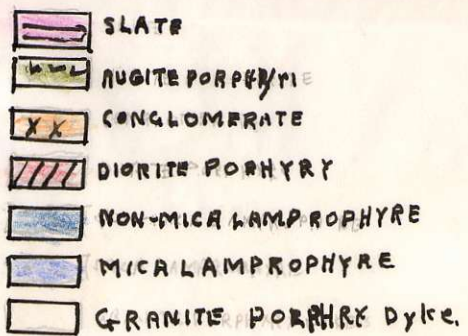 SLATE
AUGITE PORPHYRI
CONGLOMERATE
DIORITE PORHYRY
NON-MICA LAMPROPHYRE
MICA LAMPROPHYRE
GRANITE PORPHRY Dyke.